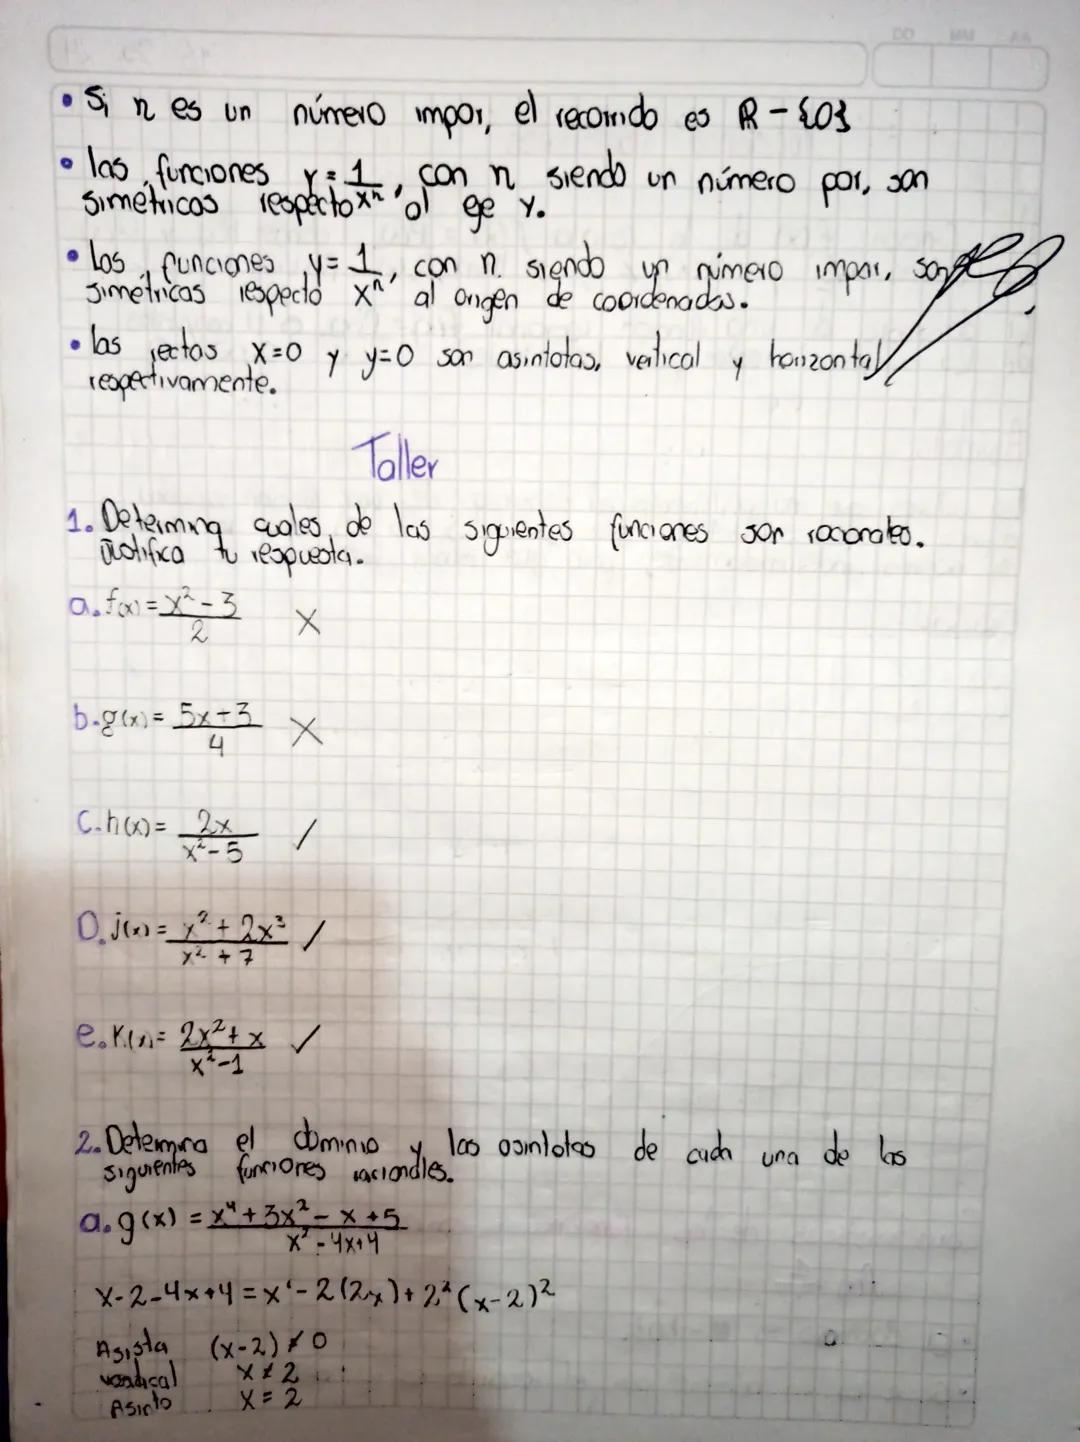 • Si n es un número impar, el recorrido es R - {0}
• las funciones y = 1/xⁿ, con n siendo un número par, son
simétricas respecto al eje y.
• Las funciones y = 1/xⁿ, con n siendo un número impar, son
simetricas respecto al origen de coordenadas.
• las rectas x=0 y y=0 son asintotas, vertical y horizontal
respectivamente.
Taller
1. Determina cuales de las siguientes funciones son racionales.
Justifica tu respuesta.
a. f(x) = x² - 3 / 2 X
b. g(x) = 5x+3 / 4 X
C. h(x) = 2x / x² - 5 /
D. j(x) = x² + 2x³ / x² + 7 /
e. K(x) = 2x² + x / x² - 1 ✓
2. Determina el dominio y las asintotas de cada una de las
siguientes funciones racionales.
a. g(x) = x⁴ + 3x² - x + 5 / x² - 4x + 4
x-2-4x+4 = x² - 2(2x) + 2² (x-2)²
Asista (x-2) ≠ 0
vertical x ≠ 2
Asinto x = 2